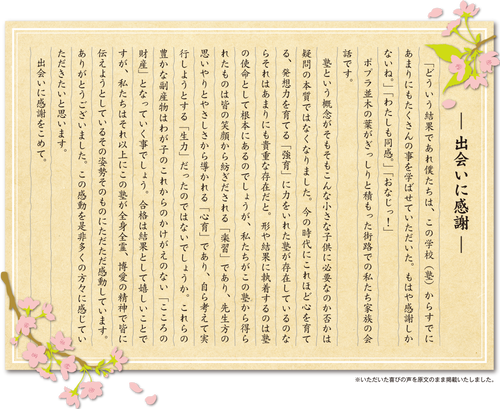 ― 出会いに感謝 ―
「どういう結果であれ僕たちは、この学校(塾)からすでに
あまりにもたくさんの事を学ばせていただいた。もはや感謝しか
ないね。」「わたしも同感。」「おなじっ!」
ポプラ並木の葉がぎっしりと積もった街路での私たち家族の会
話です。
塾という概念がそもそもこんな小さな子供に必要なのか否かは
疑問の本質ではなくなりました。今の時代にこれほど心を育て
る、発想力を育てる「強育」に力をいれた塾が存在しているのな
らそれはあまりにも貴重な存在だと。形や結果に執着するのは塾
の使命として根本にあるのでしょうが、私たちがこの塾から得ら
れたものは皆の笑顔から紡ぎだされる「楽習」であり、先生方の
思いやりとやさしさから導かれる「心育」であり、自ら考えて実
行しようとする「生力」だったのではないでしょうか。これらの
豊かな副産物はわが子のこれからのかけがえのない「こころの
財産」となっていく事でしょう。合格は結果として嬉しいことで
すが、私たちはそれ以上にこの塾が全身全霊、博愛の精神で皆に
伝えようとしているその姿勢そのものにただただ感動しています。
ありがとうございました。この感動を是非多くの方々に感じてい
ただきたいと思います。
出会いに感謝をこめて。
※いただいた喜びの声を原文のまま掲載いたしました。